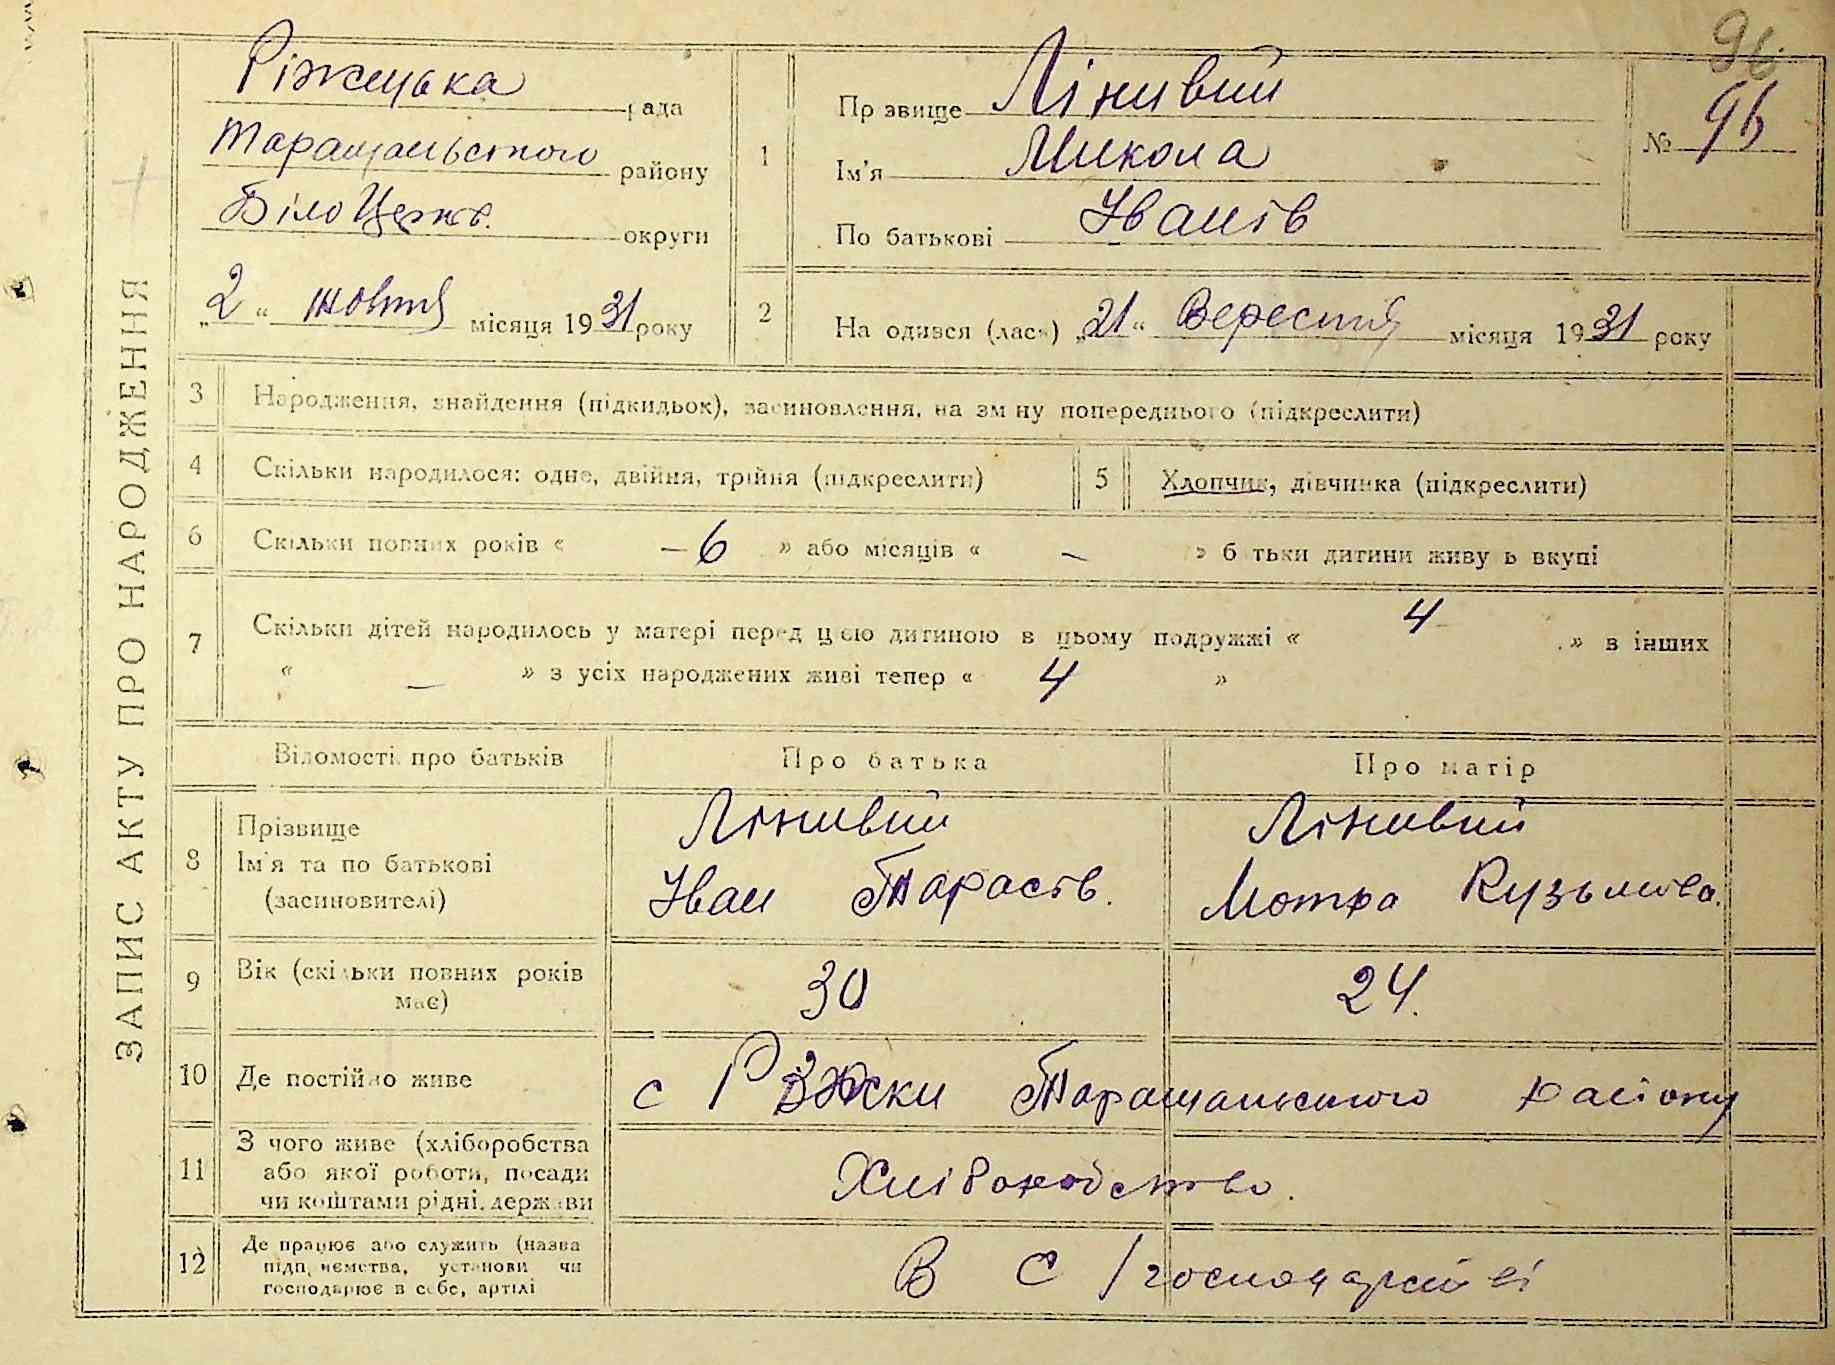 96
ЗАПИС АКТУ ПРО НАРОДЖЕННЯ
Ріжецька рада
Таращанського району
БілоЦерків. округи
„2“ жовтня місяця 1931 року
1
Пр звище Лінивий
Ім'я Микола
По батькові Іванів
№ 96
2 На одився (лась) „21“ Вересня місяця 1931 року
3 Народження, знайдення (підкидьок), засиновлення, на зм ну попереднього (підкреслити)
4 Скільки народилося: одне, двійня, трійня (підкреслити)
5 Хлопчик, дівчинка (підкреслити)
6 Скільки повних років « – 6 » або місяців « – » б тьки дитини живу ь вкупі
7 Скільки дітей народилось у матері перед цією дитиною в цьому подружжі « 4 » в інших
« – » з усіх народжених живі тепер « 4 »
Відомості про батьків Про батька Про матір
8 Прізвище
Ім'я та по батькові
(засиновителі)
Лінивий
Іван Тарасів.
Лінивий
Мотра Кузьмова.
9 Вік (скільки повних років
має)
30 24.
10 Де постійно живе с Ріжки Таращанського району
11 З чого живе (хліборобства
або якої роботи, посади
чи коштами рідні, держави
Хліборобство.
12 Де працює або служить (назва
підп, иємства, установи чи
господарює в себе, артілі
В с/господарстві